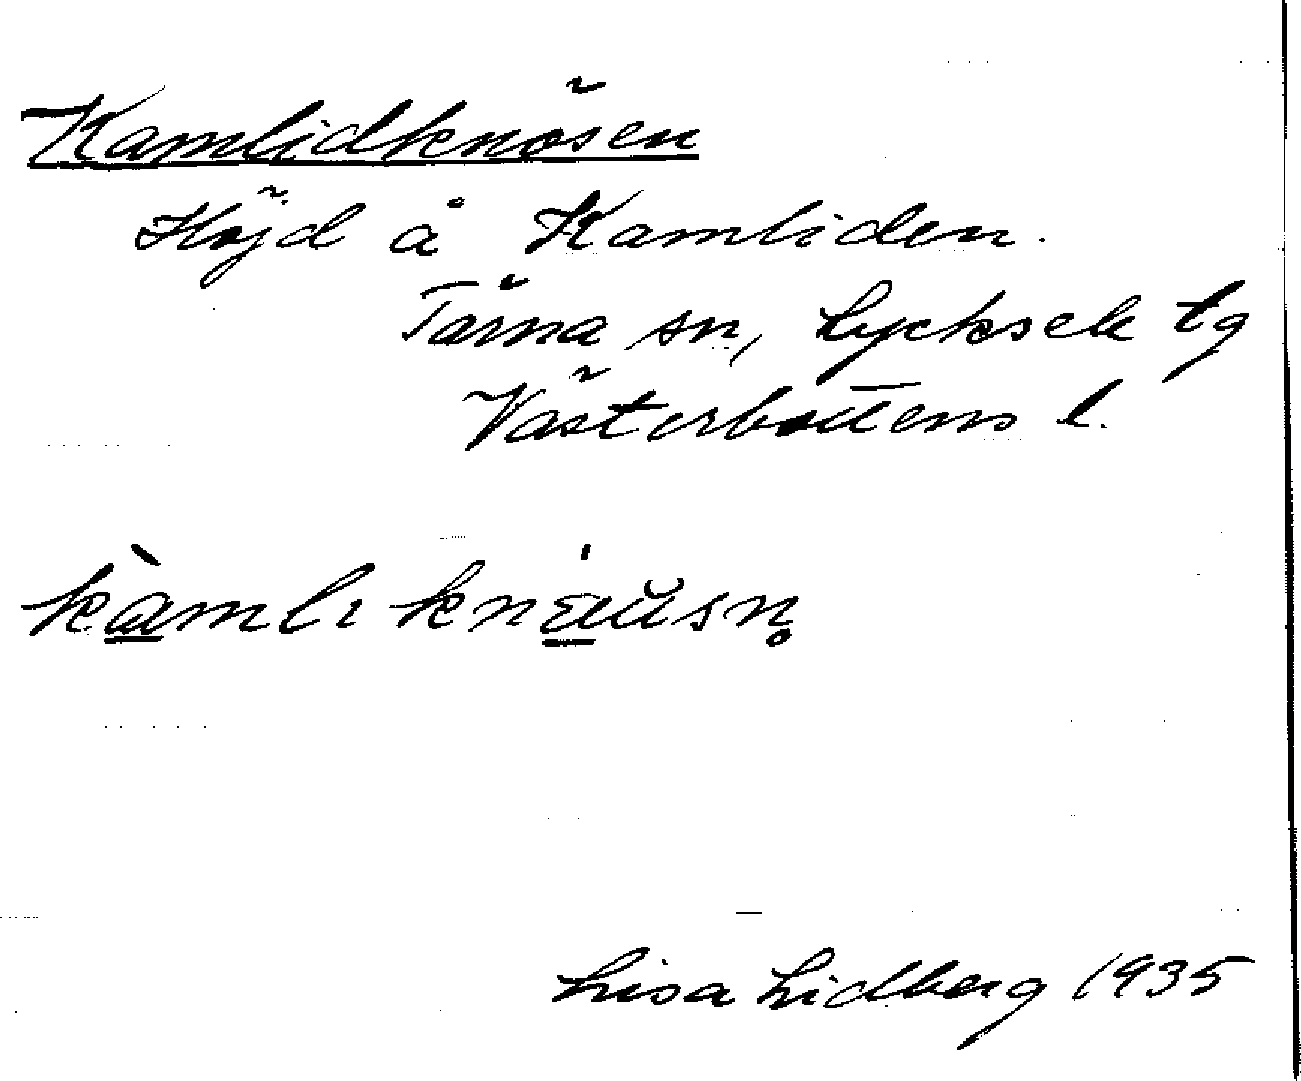 Kamlidknösen
Höjd å Kamliden.
Tärna sn, Lycksele tg
Västerbottens l.
kàmlı knɛ́ŭsn̥
Lisa Lidberg 1935